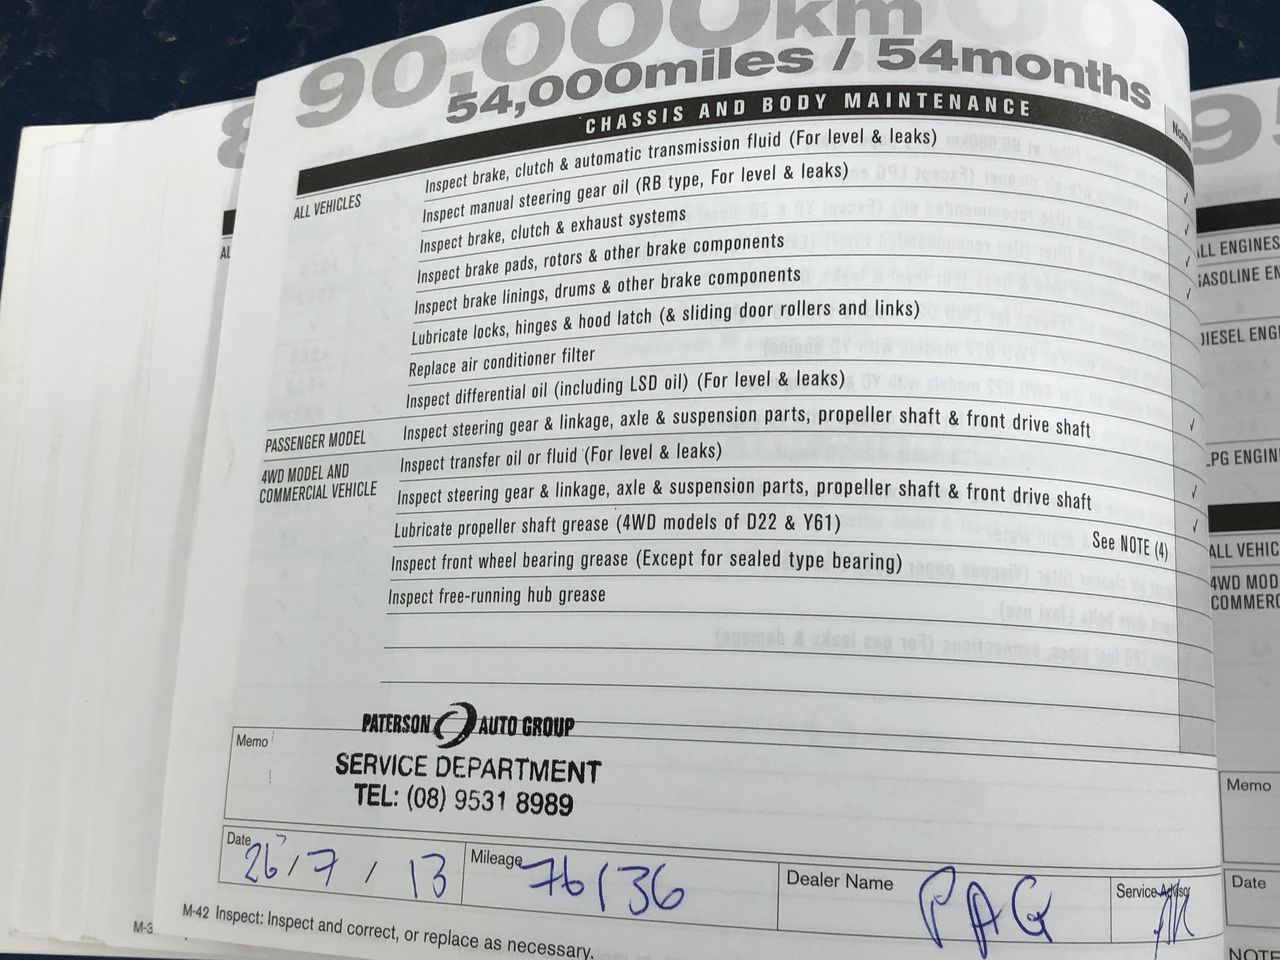 90,000km
54,000miles / 54months
CHASSIS AND BODY MAINTENANCE
ALL VEHICLES
Inspect brake, clutch & automatic transmission fluid (For level & leaks)
Inspect manual steering gear oil (RB type, For level & leaks)
Inspect brake, clutch & exhaust systems
Inspect brake pads, rotors & other brake components
Inspect brake linings, drums & other brake components
Lubricate locks, hinges & hood latch (& sliding door rollers and links)
Replace air conditioner filter
Inspect differential oil (including LSD oil) (For level & leaks)
PASSENGER MODEL
Inspect steering gear & linkage, axle & suspension parts, propeller shaft & front drive shaft
4WD MODEL AND
COMMERCIAL VEHICLE
Inspect transfer oil or fluid (For level & leaks)
Inspect steering gear & linkage, axle & suspension parts, propeller shaft & front drive shaft
Lubricate propeller shaft grease (4WD models of D22 & Y61)
See NOTE (4)
Inspect front wheel bearing grease (Except for sealed type bearing)
Inspect free-running hub grease
PATERSON AUTO GROUP
Memo
SERVICE DEPARTMENT
TEL: (08) 9531 8989
Date 26/7/13
Mileage 76136
Dealer Name PAG
Service Advisor
M-42 Inspect: Inspect and correct, or replace as necessary.
8
AL
M-3
95
LL ENGINES
GASOLINE EN
DIESEL ENGI
LPG ENGIN
ALL VEHIC
4WD MOD
COMMERC
Memo
Date
NOTE